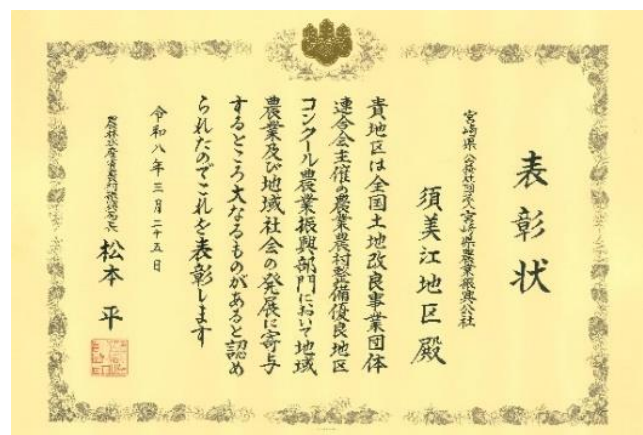 表彰状
宮崎県 公益社団法人宮崎県農業振興公社
須美江地区殿
貴地区は全国土地改良事業団体
連合会主催の農業農村整備優良地区
コンクール農業振興部門において地域
農業及び地域社会の発展に寄与
するところ大なるものがあると認め
られたのでこれを表彰します
令和八年三月二十五日
農林水産省農村振興局長 松本平